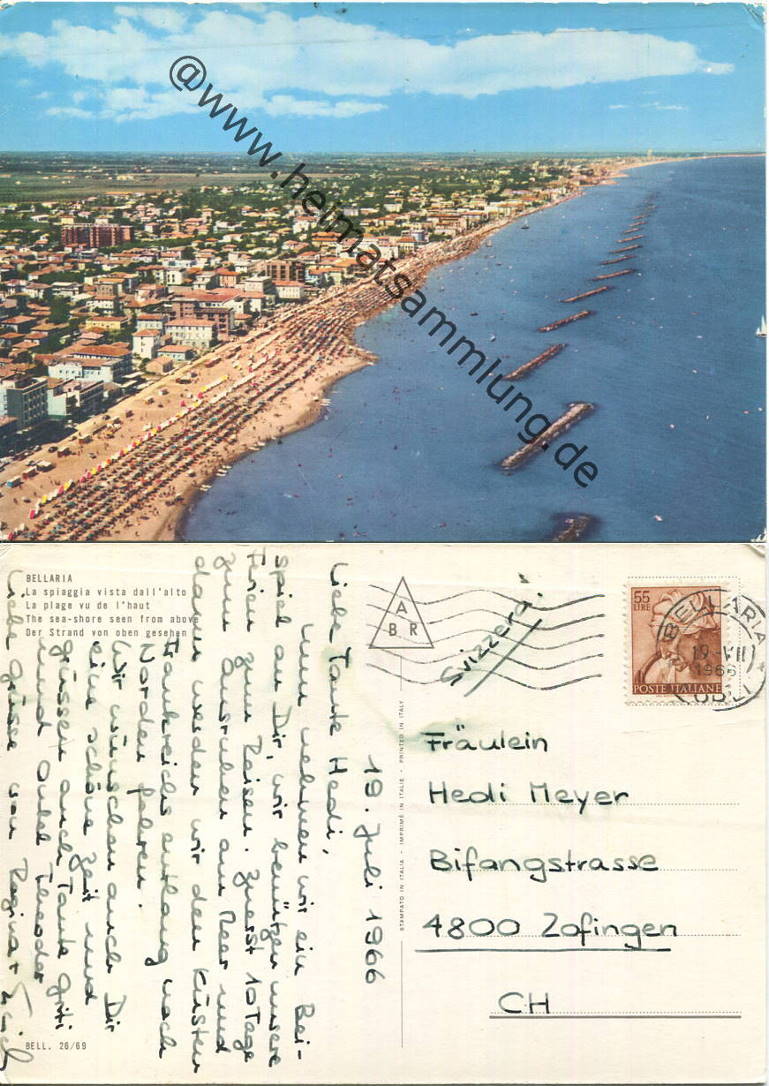 @www.heimatsammlung.de
BELLARIA
La spiaggia vista dall'alto
La plage vu de l'haut
The sea-shore seen from above
Der Strand von oben gesehen
19. Juli 1966
Liebe Tante Hedi,
nun nehmen wir ein Bei-
spiel an Dir, wir benützen unsere
Ferien zum Reisen. Zuerst 10 Tage
zum Ausruhen am Meer und
dann werden wir den Küsten
Frankreichs entlang nach
Norden fahren.
Wir wünschen auch Dir
eine schöne Zeit und
grüssen auch Tante Griti
und Onkel Theodor
Liebe Grüsse von Regina +
BELL. 26/69
STAMPATO IN ITALIA - IMPRIMÉ IN ITALIE - PRINTED IN ITALY
A
B R
Svizzera!
55
LIRE
POSTE ITALIANE
BELLARIA
19.-VII
1966
Fräulein
Hedi Meyer
Bifangstrasse
4800 Zofingen
CH